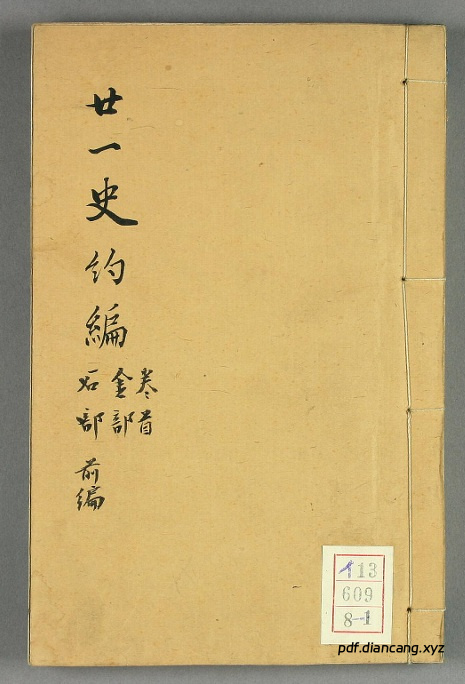 廿一史約編
卷首
金部
石部 前編
113
609
8-1
pdf.diancang.xyz